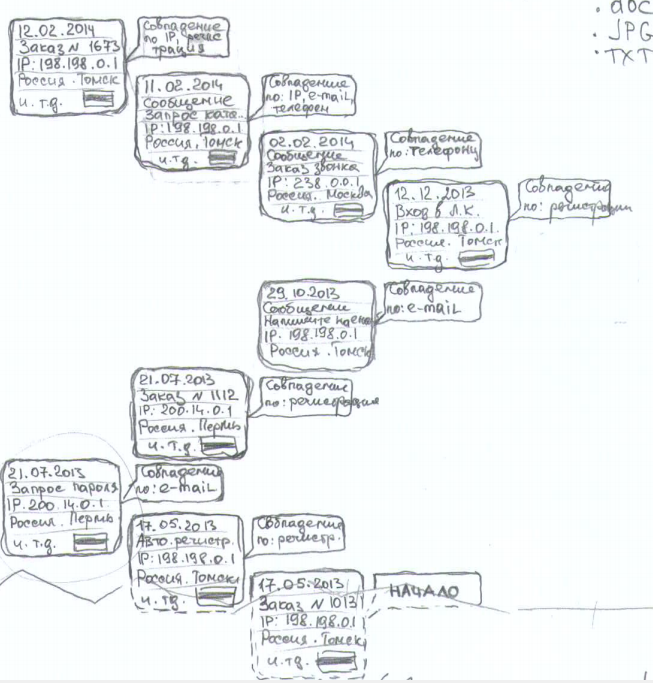 .doc
.JPG
.TXT
12.02.2014
Заказ N 1673
IP: 198.198.0.1
Россия. Томск
и.т.д.
Совпадение
по IP, регис
трация
11.02.2014
Сообщение
Запрос ката..
IP: 198.198.0.1
Россия, Томск
и.т.д.
Совпадение
по: IP, e-mail,
телефон
02.02.2014
Сообщение
Заказ звонка
IP: 238.0.0.1
Россия. Москва
и.т.д.
Совпадение
по: телефону
12.12.2013
Вход в Л.К.
IP: 198.198.0.1.
Россия. Томск
и.т.д.
Совпадение
по: регистрации
29.10.2013
Сообщение
Напишите
IP. 198.198.0.1
Россия. Томск
Совпадение
по: e-maiL
21.07.2013
Заказ N 1112
IP: 200.14.0.1
Россия. Пермь
и.т.д.
Совпадение
по: регистрация
21.07.2013
Запрос пароля
IP. 200.14.0.1
Россия. Пермь
и.т.д.
Совпадение
по: e-maiL
17.05.2013
Авто.регистр.
IP: 198.198.0.1
Россия. Томск
и.тд.
Совпадение
по: регистр.
17.05.2013
Заказ N 1013
IP: 198.198.0.1
Россия. Томск
и.тд.
НАЧАЛО